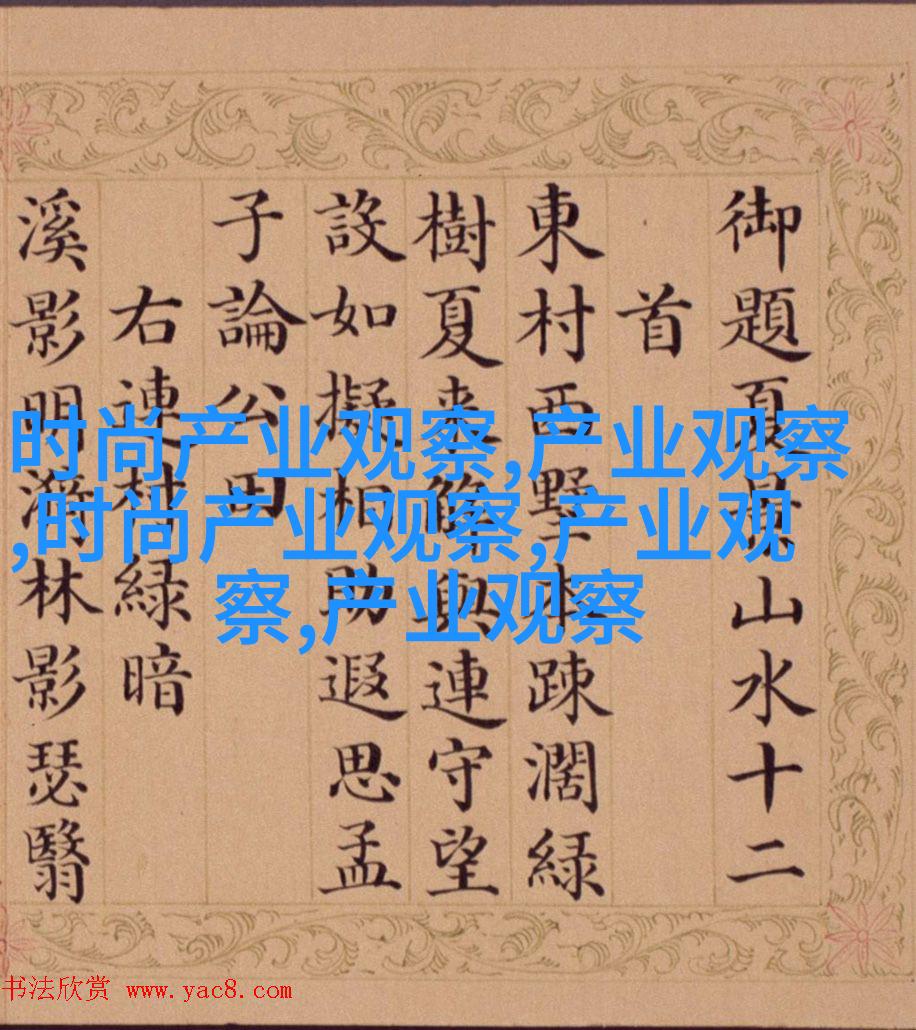 御題夏景山水十二
首
東村西墅木疎濶緑
樹夏来連守望
設如擬相助遐思孟
子論公田
右連村緑暗
溪影明漪林影瑟翳
时尚产业观察,产业观察
,时尚产业观察,产业观
察,产业观察
书法欣赏 www.yac8.com